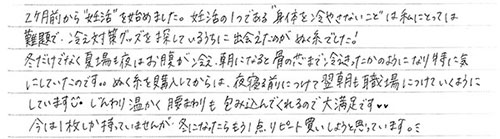 2ヶ月前から"妊活"を始めました。妊活の1つである"身体を冷やさないこと"は私にとっては
難題で、冷え対策グッズを探しているうちに出会えたのがぬく系でした!
冬だけでなく夏場も夜はお腹が冷え、朝になると骨の芯まで冷えきったかのようになり特に気
にしていたのです。ぬく系を購入してからは、夜寝る前につけて翌朝も職場につけていくように
しています。じんわり温かく腰まわりも包み込んでくれるので大満足です♥♥
今は1枚しか持っていませんが冬になったらもう1点リピート買いしようと思っています。